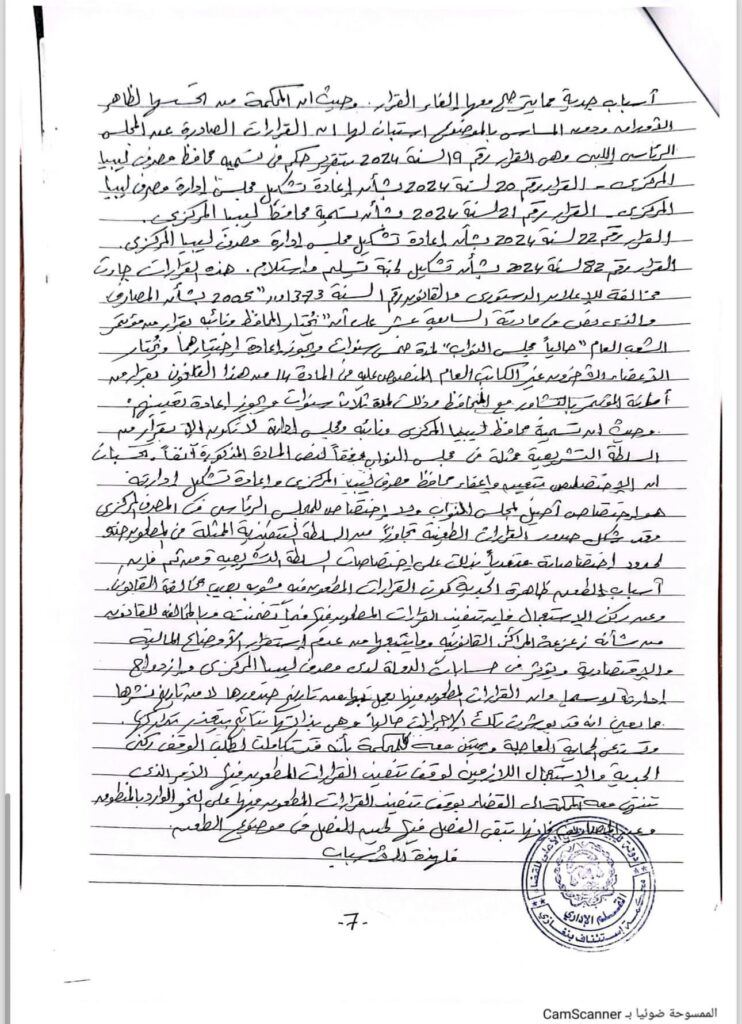 أسباب جدية مما يترجح معها إلغاء القرار. وحيث ان المحكمة من تحسسها لظاهر
الأوراق ودون المساس بالموضوع استبان لها ان القرارات الصادرة عن المجلس
الرئاسي الليبي وهى القرار رقم 19 لسنة 2024 بتقرير حكم في تسمية محافظ مصرف ليبيا
المركزى - القرار رقم 20 لسنة 2024 بشأن إعادة تشكيل مجلس إدارة مصرف ليبيا
المركزى - القرار رقم 21 لسنة 2024 بشأن تسمية محافظ ليبيا المركزى.
القرار رقم 22 لسنة 2024 بشأن إعادة تشكيل مجلس إدارة مصرف ليبيا المركزى.
القرار رقم 82 لسنة 2024 بشأن تشكيل لجنة تسليم واستلام. هذه القرارات جاءت
مخالفة للإعلان الدستورى والقانون رقم 1 لسنة 1373 ور "2005" بشأن المصارف
والذى نص فى مادته السابعة عشر على أن "يختار المحافظ ونائبه بقرار من مؤتمر
الشعب العام "حالياً مجلس النواب" لمدة خمس سنوات ويجوز إعادة اختيارهما ويختار
الأعضاء الآخرون غير الكاتب العام المنصوص عليه في المادة 14 من هذا القانون بقرار من
أمانة المؤتمر بالتشاور مع المحافظ وذلك لمدة ثلاث سنوات ويجوز إعادة تعيينهم.
وحيث ان تسمية محافظ ليبيا المركزى ونائبه ومجلس إدارته لا تكون إلا بقرار من
السلطة التشريعية ممثلة فى مجلس النواب وفقاً لنص المادة المذكورة آنفاً بحسبان
ان الإختصاص بتعيين وإعفاء محافظ مصرف ليبيا المركزى وإعادة تشكيل إدارته
هو اختصاص أصيل لمجلس النواب ولا إختصاص للمجلس الرئاسى فى المصرف المركزى
وقد شكل صدور القرارات الطعينة تجاوزاً من السلطة التنفيذية الممثلة في المطعون ضده
لحدود اختصاصاته متعدياً بذلك على إختصاصات السلطة التشريعية ومن ثم فإن
أسباب الطعن ظاهرة الجدية كون القرارات المطعون فيه مشوبه بعيب مخالفة القانون.
وعن ركن الإستعجال فإن تنفيذ القرارات المطعون فيها فيما تضمنته وبالمخالفه للقانون
من شأنه زعزعة المراكز القانونيه وما يتبعها من عدم إستقرار الأوضاع المالية
والإقتصادية ويؤثر فى حسابات الدولة لدى مصرف ليبيا المركزى وإزدواج
إدارته لا سيما وان القرارات المطعون فيها يعمل بها من تاريخ صدورها لا من تاريخ نشرها
مما يعنى انه قد بوشرت تلك الإجراءات حالياً وهى بذاتها نتائج يتعذر تداركها.
وتستدعى الحماية العاجلة ويبين معه للمحكمة بأنه قد تكاملت لطلب الوقف ركنى
الجدية والإستعجال اللازمين لوقف تنفيذ القرارات المطعون فيها الأمر الذى
تنتهى معه المحكمة الى القضاء بوقف تنفيذ القرارات المطعون فيها على النحو الوارد بالمنطوق
وعن المصاريف فإنها تبقى الفصل فيها لحين الفصل فى موضوع الطعن.
فلهذه الأسباب
-7-
القسم الإدارى
محكمة إستئناف بنغازى
الممسوحة ضوئيا بـ CamScanner